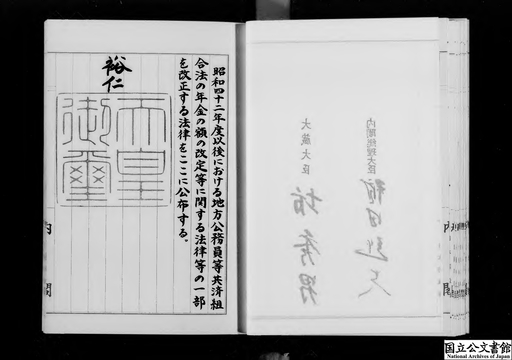 昭和四十二年度以後における地方公務員等共済組
合法の年金の額の改定等に関する法律等の一部
を改正する法律をここに公布する。
裕仁
天皇
御璽
内閣
内閣総理大臣
大蔵大臣
内閣
国立公文書館
National Archives of Japan